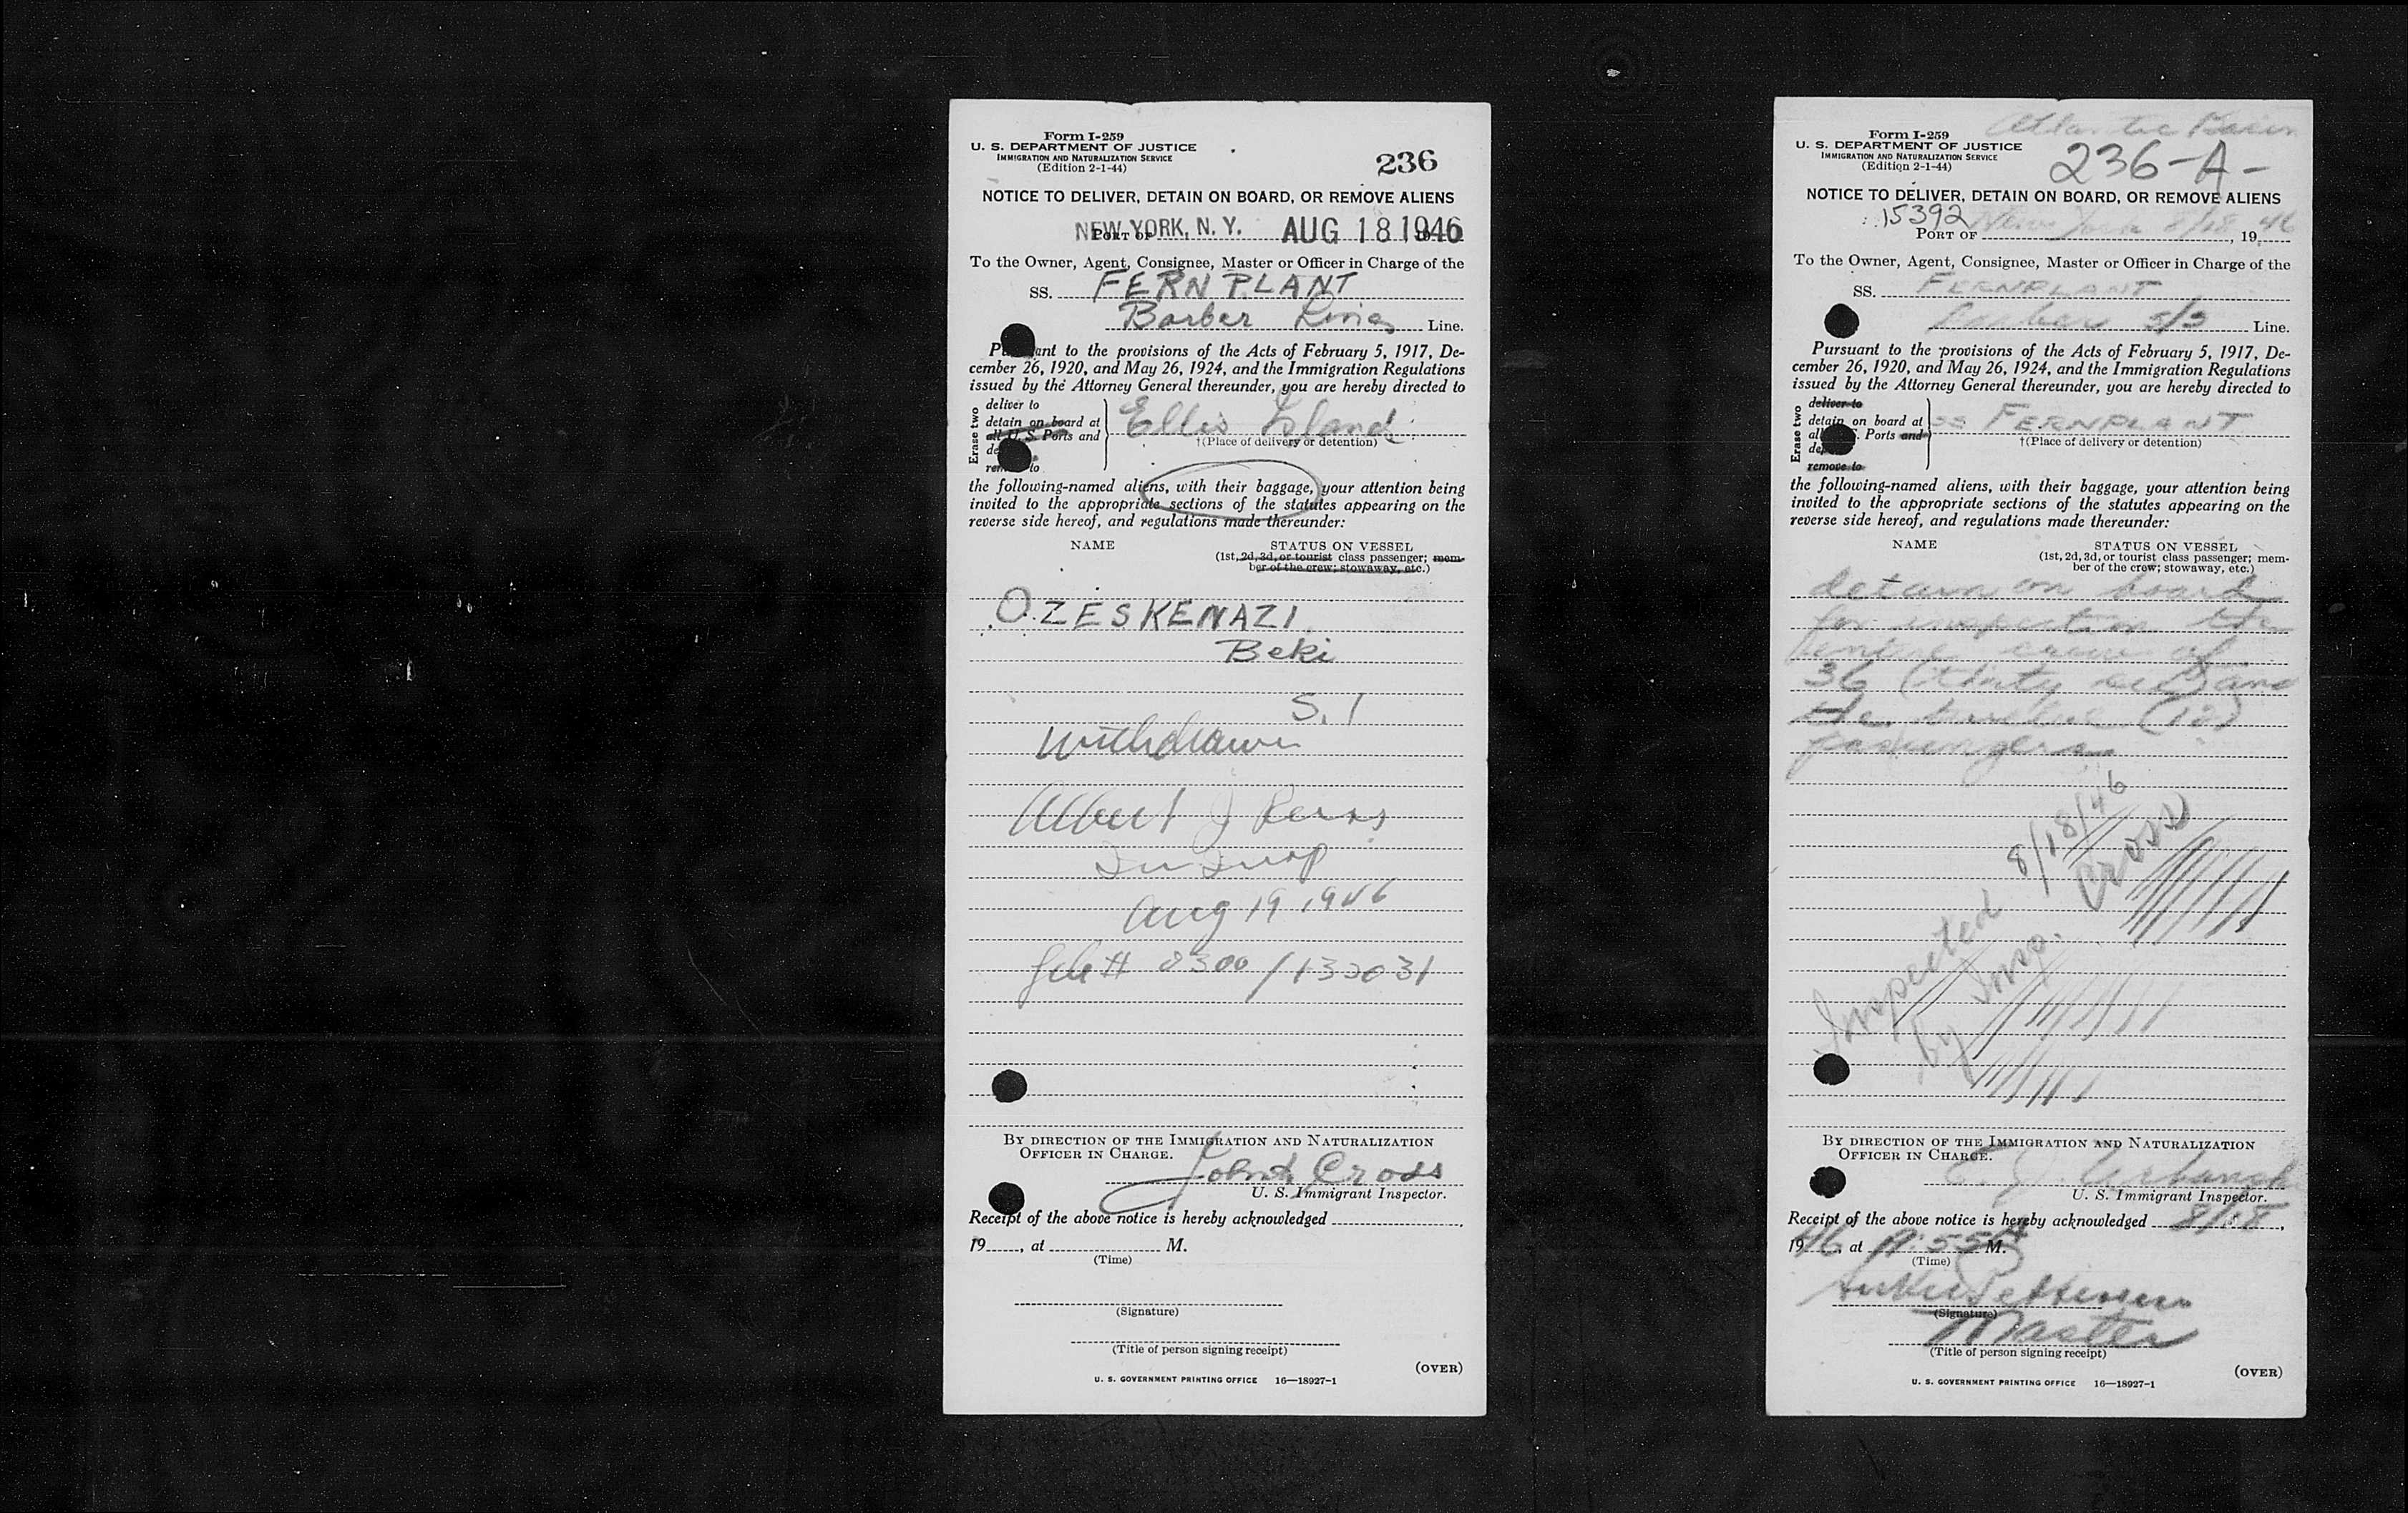 Form I-259
U. S. DEPARTMENT OF JUSTICE
IMMIGRATION AND NATURALIZATION SERVICE
(Edition 2-1-44)
236
NOTICE TO DELIVER, DETAIN ON BOARD, OR REMOVE ALIENS
NEW YORK, N. Y. AUG 18 1946
PORT OF
To the Owner, Agent, Consignee, Master or Officer in Charge of the
SS. FERNPLANT
Barber Lines Line.
Pursuant to the provisions of the Acts of February 5, 1917, De-
cember 26, 1920, and May 26, 1924, and the Immigration Regulations
issued by the Attorney General thereunder, you are hereby directed to
Erase two
deliver to
detain on board at
all U. S. Ports and
remove to
Ellis Island
†(Place of delivery or detention)
the following-named aliens, with their baggage, your attention being
invited to the appropriate sections of the statutes appearing on the
reverse side hereof, and regulations made thereunder:
NAME STATUS ON VESSEL
(1st, 2d, 3d, or tourist class passenger; mem-
ber of the crew; stowaway, etc.)
OZESKENAZI
Beki
S. I
Withdrawn
Albert J
Aug 19 1946
/132031
BY DIRECTION OF THE IMMIGRATION AND NATURALIZATION
OFFICER IN CHARGE.
Cross
U. S. Immigrant Inspector.
Receipt of the above notice is hereby acknowledged
19, at M.
(Time)
(Signature)
(Title of person signing receipt)
(OVER)
U. S. GOVERNMENT PRINTING OFFICE 16—18927-1
Atlantic Basin
Form I-259
U. S. DEPARTMENT OF JUSTICE
IMMIGRATION AND NATURALIZATION SERVICE
(Edition 2-1-44)
236-A-
NOTICE TO DELIVER, DETAIN ON BOARD, OR REMOVE ALIENS
15392
PORT OF New York 8/18, 1946
To the Owner, Agent, Consignee, Master or Officer in Charge of the
SS. FERNPLANT
Barber S/S Line.
Pursuant to the provisions of the Acts of February 5, 1917, De-
cember 26, 1920, and May 26, 1924, and the Immigration Regulations
issued by the Attorney General thereunder, you are hereby directed to
Erase two
deliver to
detain on board at
Ports and
remove to
SS FERNPLANT
†(Place of delivery or detention)
the following-named aliens, with their baggage, your attention being
invited to the appropriate sections of the statutes appearing on the
reverse side hereof, and regulations made thereunder:
NAME STATUS ON VESSEL
(1st, 2d, 3d, or tourist class passenger; mem-
ber of the crew; stowaway, etc.)
detain on board
for inspection the
entire crew of
36 (thirty six) and
the twelve (12)
passengers
Inspected 8/18/46
by Insp. Cross
BY DIRECTION OF THE IMMIGRATION AND NATURALIZATION
OFFICER IN CHARGE.
U. S. Immigrant Inspector.
Receipt of the above notice is hereby acknowledged 8/18,
1946, at M.
(Time)
(Signature)
Master
(Title of person signing receipt)
(OVER)
U. S. GOVERNMENT PRINTING OFFICE 16—18927-1